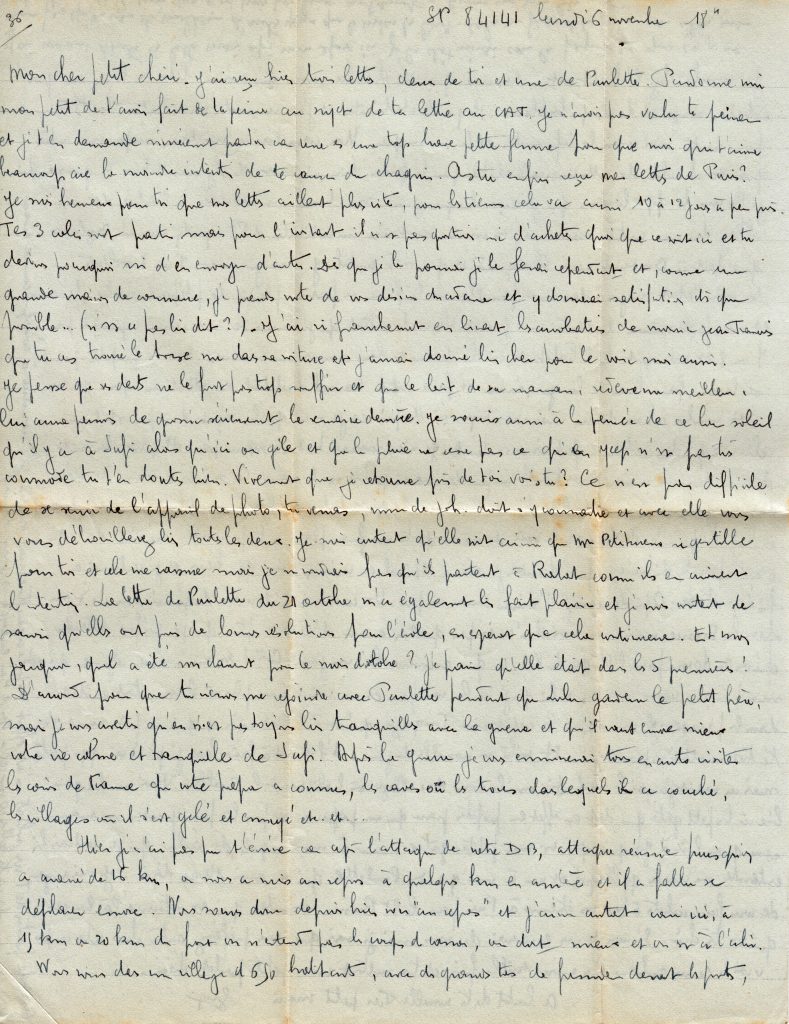 36 SP 84141 lundi 6 novembre 18h
Mon cher petit chéri. J'ai reçu hier trois lettres, deux de toi et une de Paulette. Pardonne moi
mon petit de t'avoir fait de la peine au sujet de ta lettre au CAT. Je n'avais pas voulu te peiner
et je t'en demande sincèrement pardon car une es une trop brave petite femme pour que moi qui t'aime
beaucoup aie la moindre intention de te causer du chagrin. As tu enfin reçu mes lettres de Paris?
Je suis heureux pour toi que mes lettres aillent plus vite, pour les tiennes cela va aussi 10 à 12 jours à peu près.
Tes 3 colis sont partis mais pour l'instant il n'est pas question ni d'acheter quoi que ce soit ici et tu
devines pourquoi ni d'en envoyer d'autres. Dès que je le pourrai je le ferai cependant et, comme une
grande maison de commerce, je prends note de vos désirs Madame et y donnerai satisfaction dès que
possible... (n'est ce pas bien dit?). J'ai ri franchement en lisant les acrobaties de monsieur Jean François
que tu as trouvé le torse nu dans sa voiture et j'aurais donné bien cher pour le voir moi aussi.
Je pense que ses dents ne le font pas trop souffrir et que le lait de sa maman, redevenu meilleur,
lui aura permis de grossir sérieusement la semaine dernière. Je souris aussi à la pensée de ce beau soleil
qu'il y a à Safi alors qu'ici on gèle et que la pluie ne cesse pas ce qui en jeep n'est pas très
commode tu t'en doutes bien. Vivement que je retourne près de toi vois tu? Ce n'est pas difficile
de se servir de l'appareil de photo, tu verras, mme de Joh. doit s'y connaitre et avec elle vous
vous débrouillerez bien toutes les deux. Je suis content qu'elle soit ainsi que Mr Petit si gentille
pour toi et cela me rassure mais je ne voudrais pas qu'ils partent à Rabat comme ils en avaient
l'intention. La lettre de Paulette du 21 octobre m'a également bien fait plaisir et je suis content de
savoir qu'elles ont pris de bonnes résolutions pour l'école, en espérant que cela continuera. Et mon
Jacques, quel a été son classement pour le mois d'octobre? Je parie qu'elle était dans les 5 premières!
D'accord pour que tu viennes me rejoindre avec Paulette pendant que Lulu gardera le petit frère,
mais je vous avertis qu'on n'est pas toujours bien tranquilles avec la guerre et qu'il vaut encore mieux
votre vie calme et tranquille de Safi. Après la guerre je vous emmènerai tous en auto visiter
les coins de France que votre papa a connus, les caves où les trous dans lesquels il a couché,
les villages où il s'est gelé et ennuyé etc. etc.
Hier je n'ai pas pu t'écrire car après l'attaque de notre DB, attaque réussie puisqu'on
a avancé de 16 km, on nous a mis au repos à quelques km en arrière et il a fallu se
déplacer encore. Nous sommes donc depuis hier soir "au repos" et j'aime autant car ici, à
15 km ou 20 km du front on n'entend pas les coups de canon, on dort mieux et on est à l'abri.
Nous sommes dans un village de 650 habitants, avec de grands tas de fumier devant les portes,